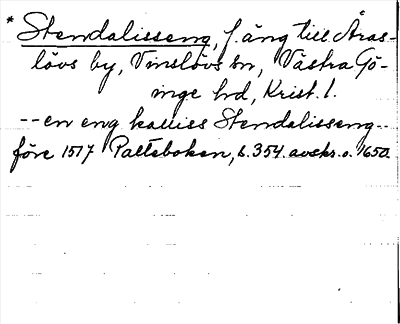 * Stendalisseng, f. äng till Åras-
lövs by, Vinslövs sn, Västra Gö-
inge hd, Krist. l.
-- en eng kalliss Stendalisseng --
före 1517 Palteboken, s. 354. avskr. o. 1650.